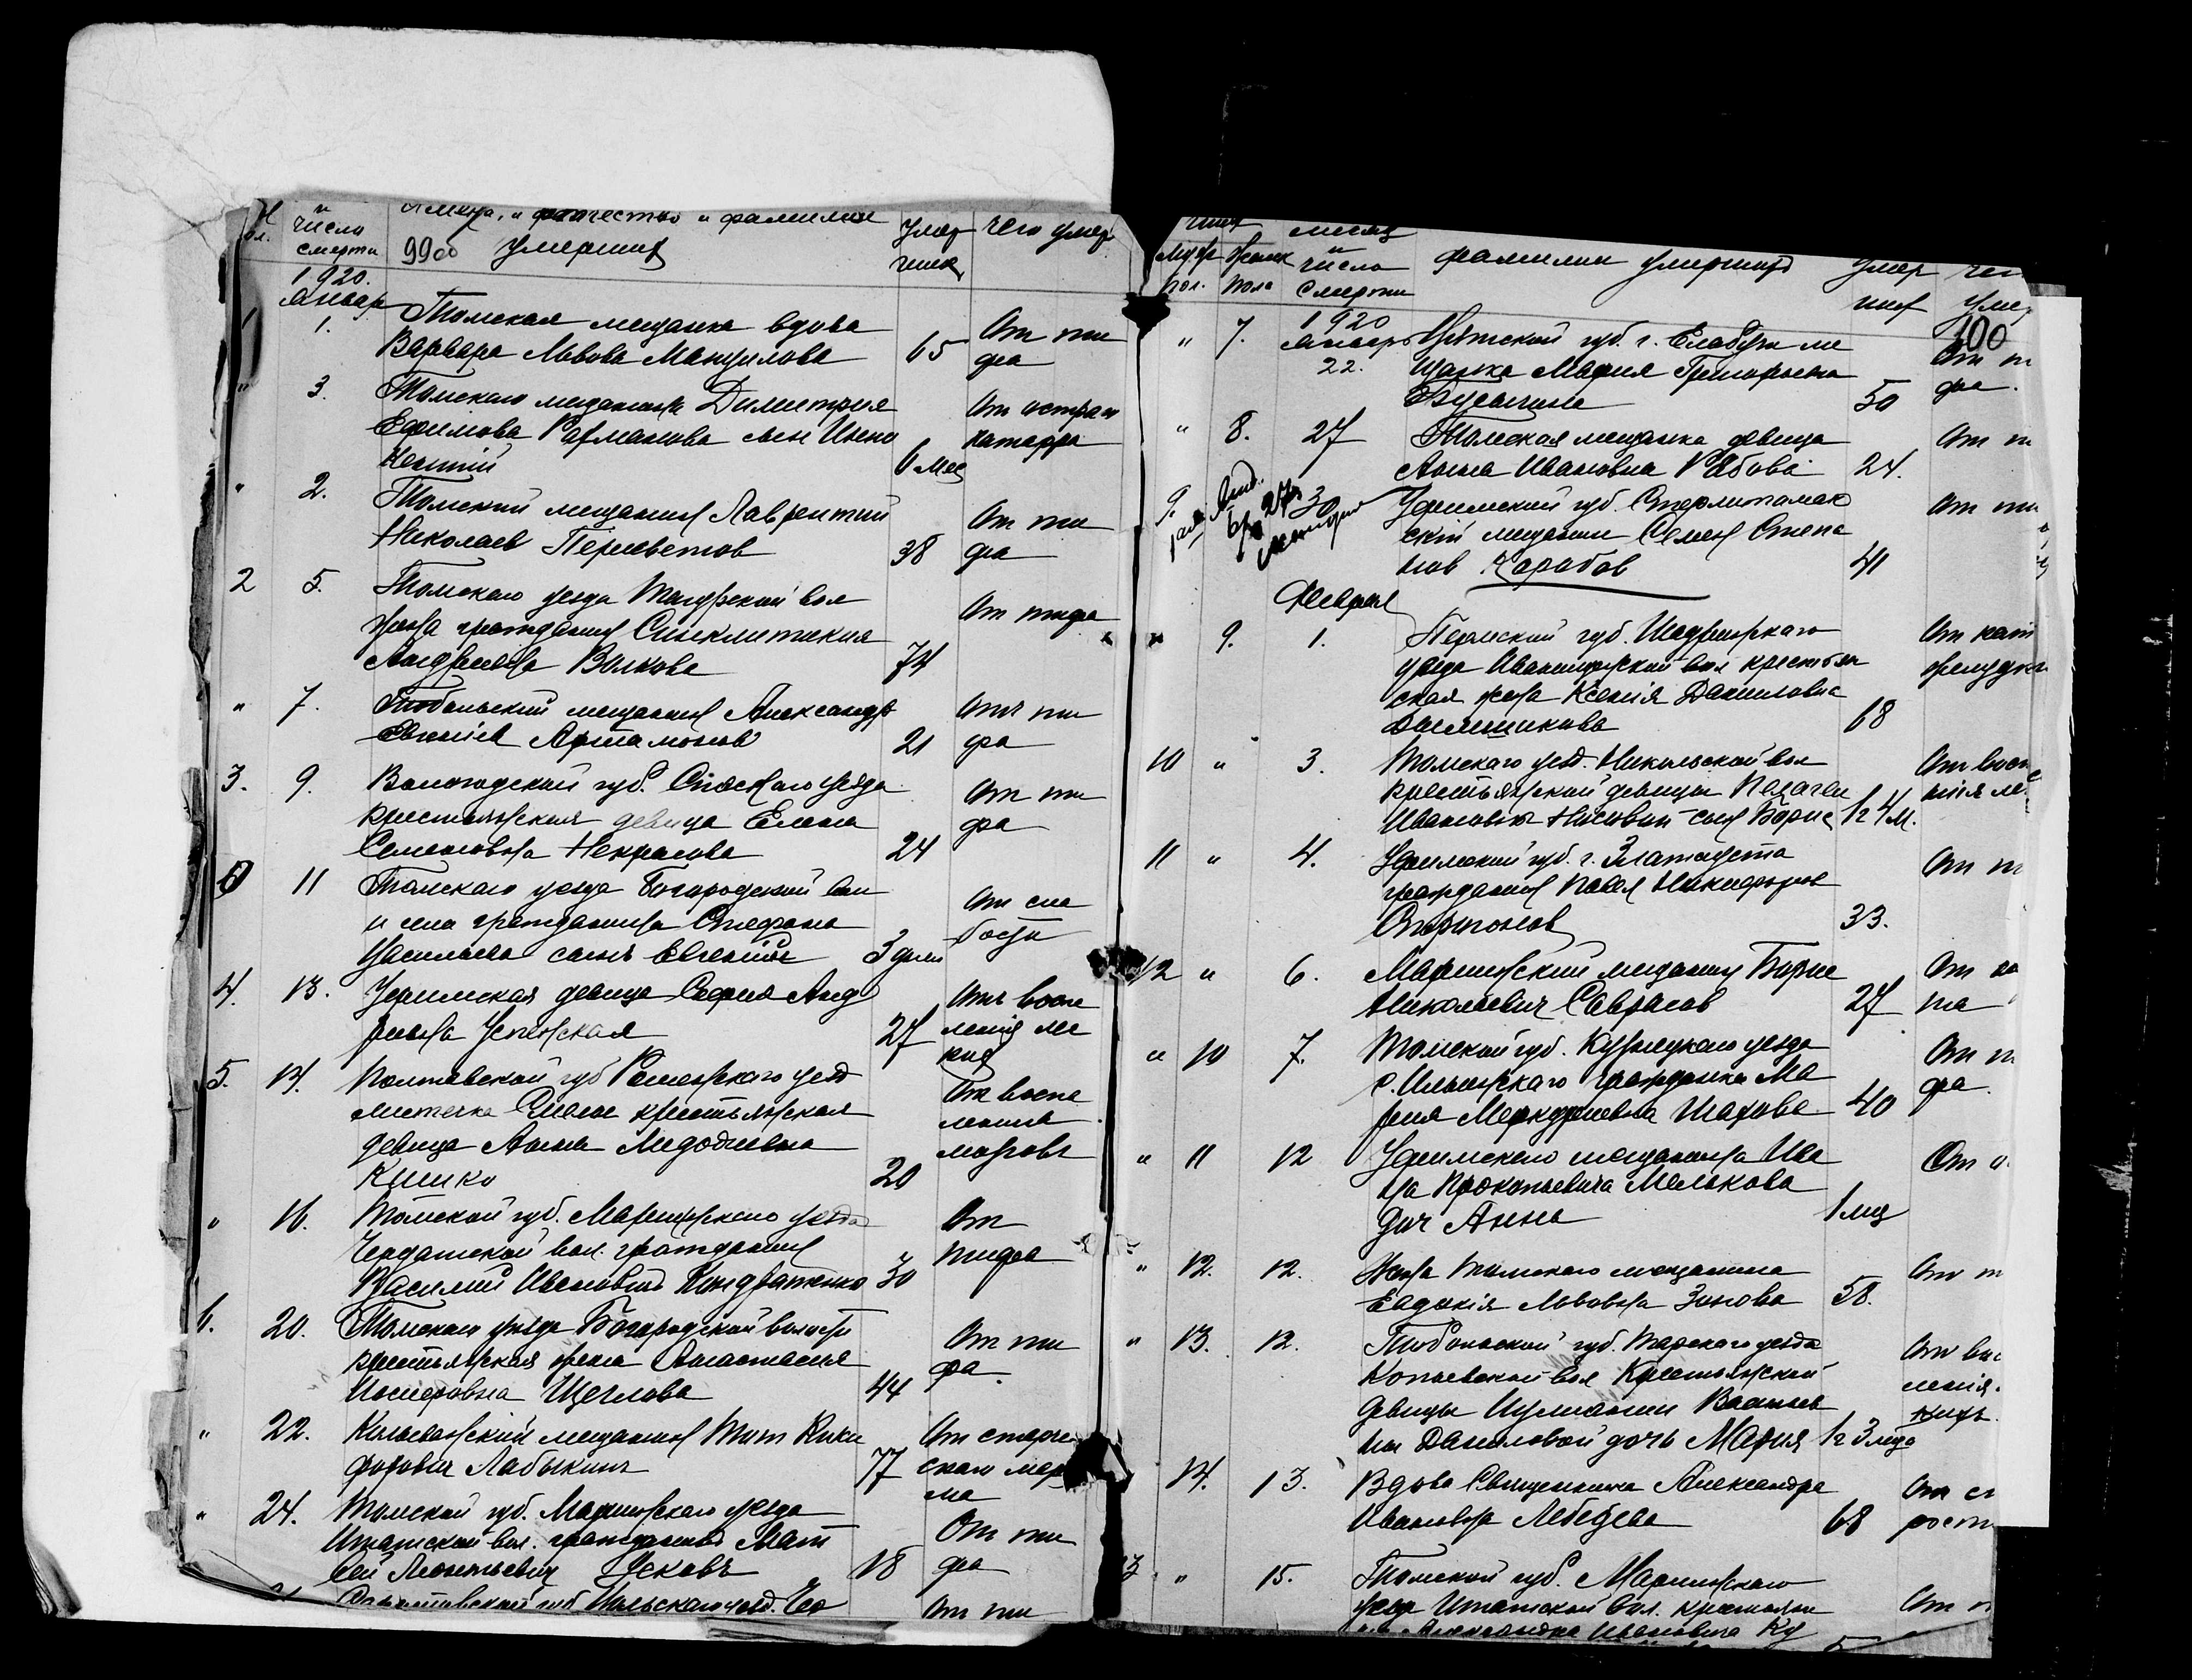 Имена, и отчество и фамилии
числа
смерти
99об
умерших
умер
ших
чего умер
1920.
Январ
1.
Томская мещанка вдова
Варвара Львова Манцилова
65
От ти
фа
3.
Томскаго мещанина Димитрия
Ефимова Рахманова сын Инно
кентий
6 мес
От остраго
катарра
2.
Томский мещанин Лаврентий
Николаев Пересветов
38
От ти
фа
2
5.
Томскаго уезда
жена гражданина Синклитикия
Андреевна Волкова
74
От тифа
7.
Тобольский мещанин Александр
Евгениев Артамонов
21
Отъ ти
фа
3.
9.
Вологодской губ. уезда
крестьянская девица Елена
Семеновна Некрасова
24
От ти
фа
11
Томскаго уезда Богородской вол
и села гражданина Стефана
Васильева сынъ Евгенийъ
3 дней
От сла
бости
4.
13.
Уфимская девица София Анд
реевна Успенская
27
Отъ воспа
ления ле
ких
5.
14.
Полтавской губ Роменскаго уезд
местечка крестьянская
девица Анна Мефодиевна
Кишко
20
От воспа
ления
мозговъ
16.
Томской губ. Мариинскаго уезда
Чердатской вол. гражданин
Василий Иванович Кондратенко
30
От
тифа
6.
20.
Томскаго уезда Богородской волости
крестьянская жена Анастасия
Иосифовна Щеглова
44
От ти
фа.
22.
Колыванский мещанин Тит Ники
форович Лабыкинъ
77
От старче
скаго мара
ма
24.
Томской губ. Мариинскаго уезда
Итатской вол. гражданинъ Мат
вей Леонтьевич Усковъ
18
От ти
фа
От ти
месяц
муж
пол.
женск
пола
и
число
смерти
фамилии умерших
умер
ших
чег
умер
100
7.
1920
Январь
22.
Вятской губ. г. Елабуги ме
щанка Мария Григорьевна
50
От т
фа.
8.
27
Томская мещанка девица
Анна Ивановна Рябова
24.
От т
9.
30
Уфимской губ. Стерлитамак
ский мещанин Семен Степа
нов Карабов
41
От ти
Февраля
9.
1.
Пермской губ. Шадринскаго
уезда вол крестьян
ская жена Ксения Даниловна
68
От кат
желудка
10
3.
Томскаго уезд. Никольской вол
крестьянской девицы Пелагеи
Ивановны сын Борис
1г 4 м.
От восп
ния ле
11
4.
Уфимской губ. г. Златоуста
гражданин Павел Никифоров
33.
От т
12
6.
Мариинский мещанин Борис
Николаевич Саврасов
27
От
10
7.
Томской губ. Кузнецкаго уезда
с. Ильинскаго гражданка Ма
рия Меркурьевна Шахова
40
От т
фа.
11
12
Уфимскаго мещанина Ива
на Прокопьевича Мелькова
доч Анна
1 мец
От
12.
12.
Жена томскаго мещанина
Евдокия Львовна Зинова
58.
От т
13.
12.
Тобольской губ. Тарскаго уезда
Копьевской вол Крестьянской
девицы Иулиании Васильев
ны Даниловой дочь Мария
1г 3 меца
От вос
ления
14.
13.
Вдова Священника Александра
Ивановна Лебедева
68
От ст
рости
15.
Томской губ. Мариинскаго
уезда Итатской вол. крестьян
ина Александра Ивановича Ку
От т